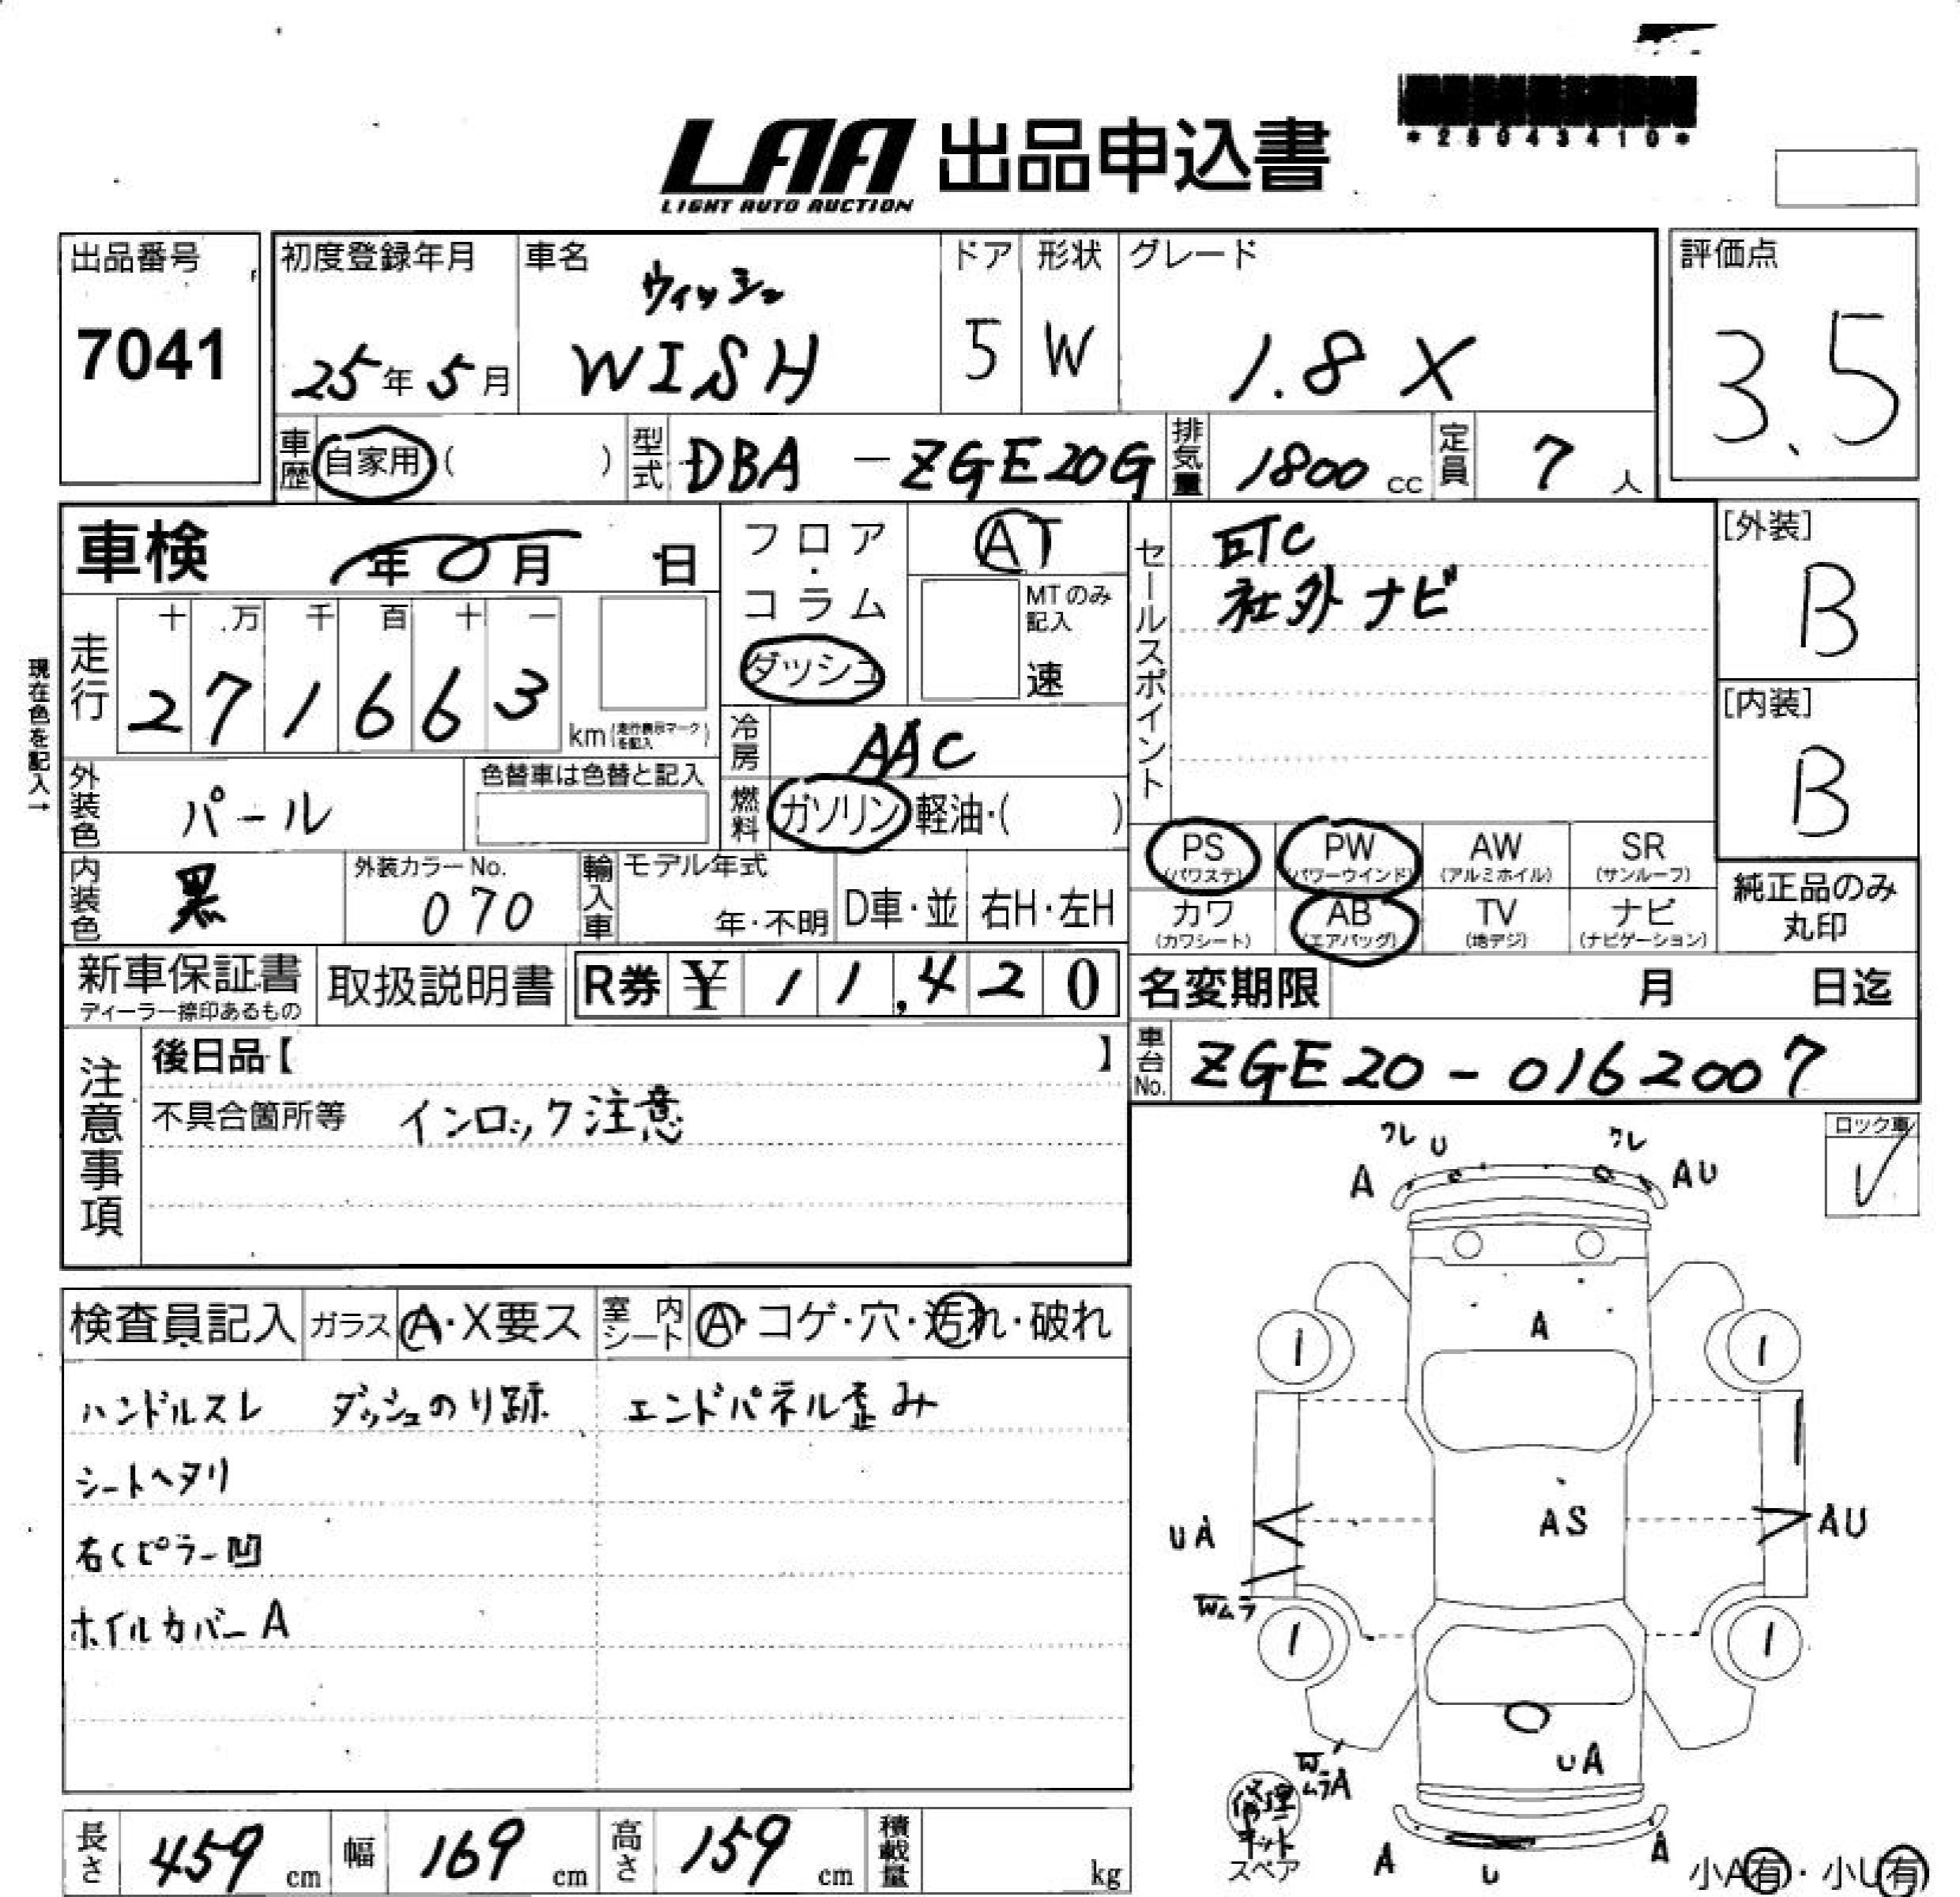 *28043410*
LAA 出品申込書
LIGHT AUTO AUCTION
出品番号
7041
初度登録年月
25年5月
車名
ウィッシュ
WISH
ドア
5
形状
W
グレード
1.8 X
評価点
3.5
車歴 自家用 ( )
型式 DBA - ZGE20G
排気量 1800 cc
定員 7 人
車検 年 月 日
フロア・コラム
ダッシュ
AT
MTのみ記入
速
セールスポイント
ETC
社外ナビ
[外装]
B
[内装]
B
現在色を記入→
走行
十 万 千 百 十 一
2 7 1 6 6 3
km(走行表示マークを記入)
冷房 AAC
燃料 ガソリン 軽油・( )
外装色 パール
色替車は色替と記入
内装色 黒
外装カラーNo.
070
輸入車 モデル年式
年・不明
D車・並
右H・左H
PS (パワステ)
PW (パワーウインド)
AW (アルミホイル)
SR (サンルーフ)
カワ (カワシート)
AB (エアバッグ)
TV (地デジ)
ナビ (ナビゲーション)
純正品のみ
丸印
新車保証書
ディーラー捺印あるもの
取扱説明書
R券 ¥ 11,420
名変期限 月 日迄
車台No. ZGE20-0162007
注意事項
後日品【 】
不具合箇所等 インロック注意
ロック車
✓
検査員記入
ガラス A・X要ス
室内シート A・コゲ・穴・汚れ・破れ
ハンドルスレ ダッシュのり跡 エンドパネル歪み
シートヘタリ
右Cピラー凹
ホイルカバーA
ワレ U ワレ
A AU
A
1 1
UA AS AU
Wムラ
1 1
UA
WムラA
修理キット
スペア
A U A
小A有・小U有
長さ 459 cm
幅 169 cm
高さ 159 cm
積載量 kg